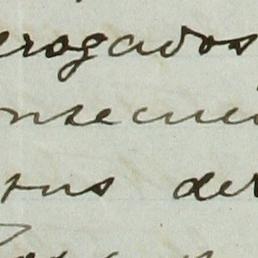 erogados
onsecuen
sus der